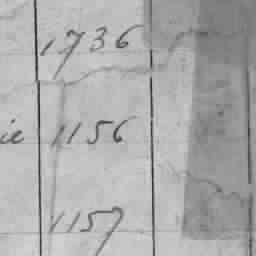 1736
ie 1156
1157